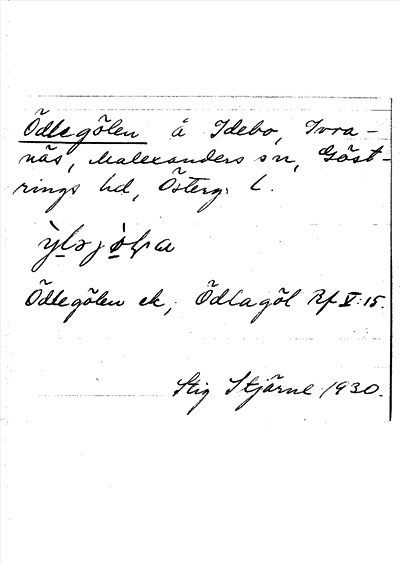 Ödlegölen å Idebo, Ivra-
näs, Malexanders sn, Göst-
rings hd, Österg. l.
Ödlegölen ek, Ödlagöl Rf V:15.
Stig Stjärne 1930.